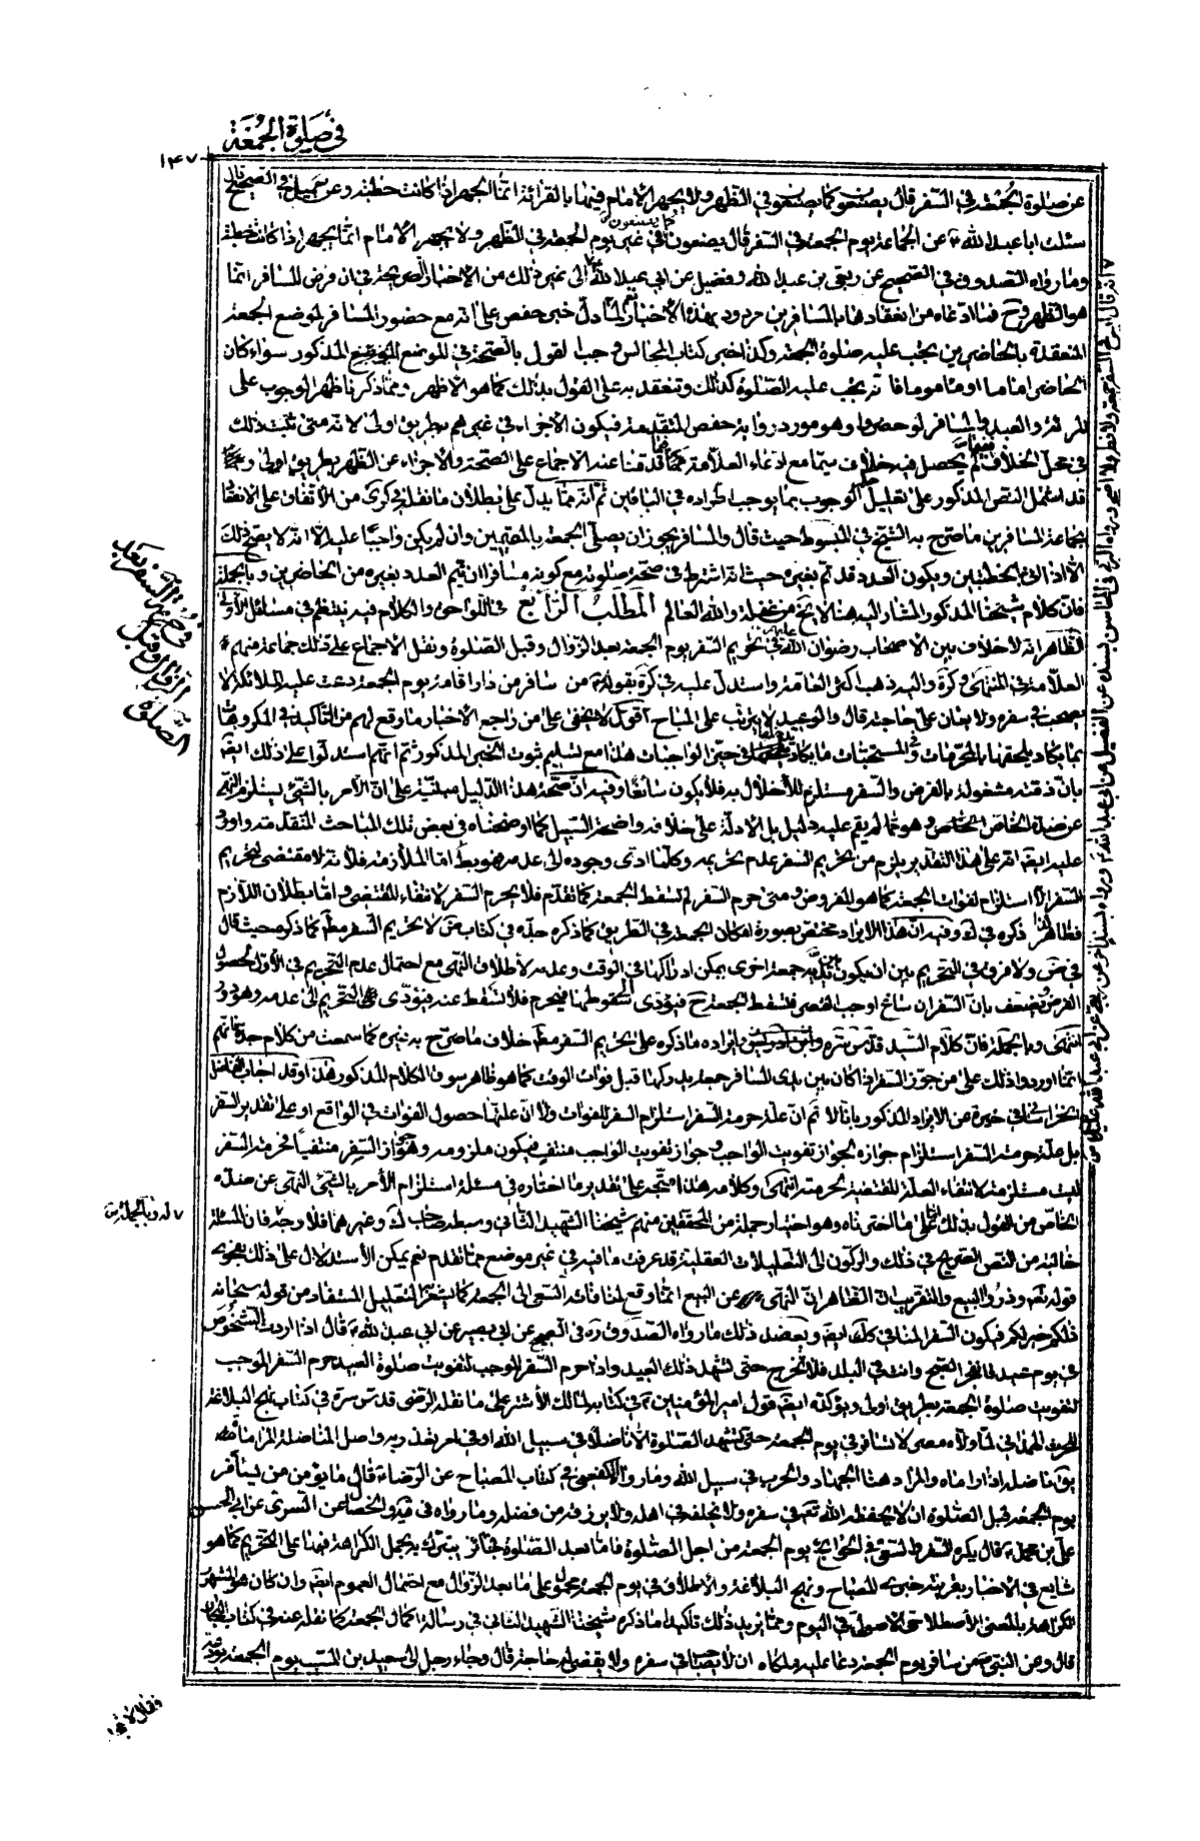 في صلوة الجمعة
١٤٧
عن صلوة الجمعة في السفر قال يصنعون كما يصنعون في الظهر ولا يجهر الامام فيها بالقرائة انما يجهر اذا كانت خطبة وعن جميل في الصحيح قال
سئلت ابا عبد الله ع عن الجماعة يوم الجمعة في السفر قال يصنعون كما يصنعون في غير يوم الجمعة في الظهر ولا يجهر الامام انما يجهر اذا كانت خطبة
وما رواه الصدوق في الصحيح عن ربعي بن عبد الله وفضيل عن ابي عبد الله ع الى غير ذلك من الاخبار الصريحة في ان فرض المسافر انما
هو الظهر وح فما ادعاه من انعقادها بالمسافرين مردود بهذه الاخبار نعم لما دل خبر حفص على انه مع حضور المسافر لموضع الجمعة
المنعقدة بالحاضرين يجب عليه صلوة الجمعة وكذا خبر كتاب المجالس وجب القول بالصحة في الموضع المذكور سواء كان
الحاضر اماما او مأموما فانه يجب عليه الصلوة كذلك وتنعقد به على القول بذلك كما هو الاظهر ومما ذكرنا ظهر الوجوب على
المرئة والعبد والمسافر لو حضروا وهو مورد رواية حفص المتقدمة فيكون الاجزاء في غيرهم بطريق اولى لانه متى ثبت ذلك
في محل الخلاف فيما لم يحصل فيه خلاف سيما مع ادعاء العلامة كما قدمنا عنه الاجماع على الصحة والاجزاء عن الظهر بطريق اولى
قد اشتمل النص المذكور على تعليل الوجوب بما يوجب اطراده في البائين ثم انه مما يدل على بطلان ما نقله في كرى من الاتفاق على الانعقاد
بجماعة المسافرين ما صرح به الشيخ في المبسوط حيث قال والمسافر يجوز ان يصلي الجمعة بالمقيمين وان لم يكن واجبا عليه الا انه لا يصح ذلك
الا اذا اتى بالخطبتين ويكون العدد قد تم بغيره حيث انه اشترط في صحة صلوته مع كونه مسافرا ان يتم العدد بغيره من الحاضرين وبالجملة
فان كلام شيخنا المذكور المشار اليه هنا لا يخ من غفلة والله العالم المطلب الرابع في اللواحق والكلام فيه ينتظم في مسائل الاولى
الظاهر انه لا خلاف بين الاصحاب رضوان الله عليهم في تحريم السفر يوم الجمعة بعد الزوال وقبل الصلوة ونقل الاجماع على ذلك جماعة منهم
العلامة في المنتهى وكرة واليه ذهب اكثر العامة واستدل عليه في كرة بقوله ص من سافر من دار اقامة يوم الجمعة دعت عليه الملائكة لا
يصحب في سفره ولا يعان على حاجته قال والوعيد لا يترتب على المباح اقول لا يخفى على من راجع الاخبار ما وقع لهم من التأكيد في المكروهات
بما يكاد يلحقها بالمحرمات وفي المستحبات ما يكاد يدخلها في حيز الواجبات هذا مع تسليم ثبوت الخبر المذكور ثم انهم استدلوا على ذلك ايضا
بان ذمته مشغولة بالفرض والسفر مستلزم للاخلال به فلا يكون سائغا وفيه ان صحة هذا الدليل مبنية على ان الامر بالشئ يستلزم النهي
عن ضده الخاص وهو مما لم يقم عليه دليل بل الادلة على خلافه واضحة السبيل كما اوضحناه في بعض تلك المباحث المتقدمة واورد
عليه ايضا انه على هذا التقدير يلزم من تحريم السفر عدم تحريمه وكلما ادى وجوده الى عدمه فهو بط اما الملازمة فلانه لا مقتضى لتحريم
السفر الا استلزام لفوات الجمعة كما هو المفروض ومتى حرم السفر لم تسقط الجمعة كما تقدم فلا يحرم السفر لانتفاء المقتضى واما بطلان اللازم
فظاهر كذا ذكره في ك وفيه ان هذا الايراد مختص بصورة امكان الجمعة في الطريق كما ذكره جده في كتاب ض لا تحريم السفر مطلقا كما ذكره حيث قال
في ض ولا فرق في التحريم بين ان يكون بين يديه جمعة اخرى يمكن ادراكها في الوقت وعدمه لاطلاق النهي مع احتمال عدم التحريم في الاول لحصول
الغرض ويضعف بان السفر ان ساغ اوجب القصر فتسقط الجمعة ح فيؤدى الى سقوطها فيحرم فلا تسقط عنه فيؤدى التحريم الى عدمه وهو دور
انتهى وبالجملة فان كلام السيد قدس سره بايراده ما ذكره على تحريم السفر مطلقا خلاف ما صرح به غيره كما سمعت من كلام جده فانهم
انما اوردوا ذلك على من جوز السفر اذا كان بين يدى المسافر جمعة يدركها قبل فوات الوقت كما هو ظاهر سوق الكلام المذكور هذا وقد اجاب الفاضل
الخراساني في خيرة عن الايراد المذكور بانا لا نم ان علة حرمة السفر استلزام السفر للفوات ولا ان علتها حصول الفوات في الواقع او على تقدير السفر
بل علة حرمة السفر استلزام جوازه لجواز تفويت الواجب وجواز تفويت الواجب منتف فيكون ملزومه وهو جواز السفر منتفيا فحرمة السفر
ليست مستلزمة لانتفاء العلة المقتضية لحرمته انتهى وكلامه هذا متجه على تقدير ما اختاره في مسئلة استلزام الامر بالشئ النهي عن ضده
الخاص من القول بذلك واما على ما اخترناه وهو اختيار جملة من المحققين منهم شيخنا الشهيد الثاني وسبطه صاحب ك وغيرهما فلا وجه فان المسئلة
خالية من النص الصريح في ذلك والركون الى التعليلات العقلية قد عرفت ما فيه في غير موضع مما تقدم نعم يمكن الاستدلال على ذلك بفحوى
قوله تعالى وذروا البيع والتقريب ان الظاهر ان النهي عن البيع انما وقع لمنافاته السعي الى الجمعة كما يشعر التعليل المستفاد من قوله سبحانه
ذلكم خير لكم فيكون السفر المنافي كذلك ايضا ويعضد ذلك ما رواه الصدوق ره في الصحيح عن ابي بصير عن ابي عبد الله ع قال اذا اردت الشخوص
في يوم عيد فانفجر الصبح وانت في البلد فلا تخرج حتى تشهد ذلك العيد واذا حرم السفر الموجب لتفويت صلوة العيد حرم السفر الموجب
لتفويت صلوة الجمعة بطريق اولى ويؤكده ايضا قول امير المؤمنين ع في كتابه لمالك الاشتر على ما نقله الرضي قدس سره في كتاب نهج البلاغة
للحرث الهمداني لا تسافر في يوم الجمعة حتى تشهد الصلوة الا ناضلا في سبيل الله او في امر تعذر به واصل المناضلة المراماة
يق ناضله اذا راماه والمراد هنا الجهاد والحرب في سبيل الله وما رواه الكفعمي في كتاب المصباح عن الرضا ع قال ما يؤمن من يسافر
يوم الجمعة قبل الصلوة ان لا يحفظه الله تعالى في سفره ولا يخلفه في اهله ولا يرزقه من فضله وما رواه في الخصال عن السرى عن ابي الحسن
علي بن محمد ع قال يكره السفر والسعي في الحوائج يوم الجمعة من اجل الصلوة فاما بعد الصلوة فجائز يتبرك به بحمل الكراهة فيها على التحريم كما هو
شايع في الاخبار بقرينة خبرى المصباح ونهج البلاغة والاطلاق في يوم الجمعة محمول على ما بعد الزوال مع احتمال العموم ايضا وان كان هو المشهور
الكراهة بالمعنى الاصطلاحي الاصولي في اليوم ومما يزيد ذلك تاكيدا ما ذكره شيخنا الشهيد الثاني في رسالة اكمال الجمعة كما نقله عنه في كتاب البحار
قال وعن النبي ص من سافر يوم الجمعة دعا عليه ملكاه ان لا يصاحب في سفره ولا يقضى له حاجة قال وجاء رجل الى سعيد بن المسيب يوم الجمعة يودعه
في حرمة السفر بعد
الزوال وقبل
الصلوة
فقال لا تعجل